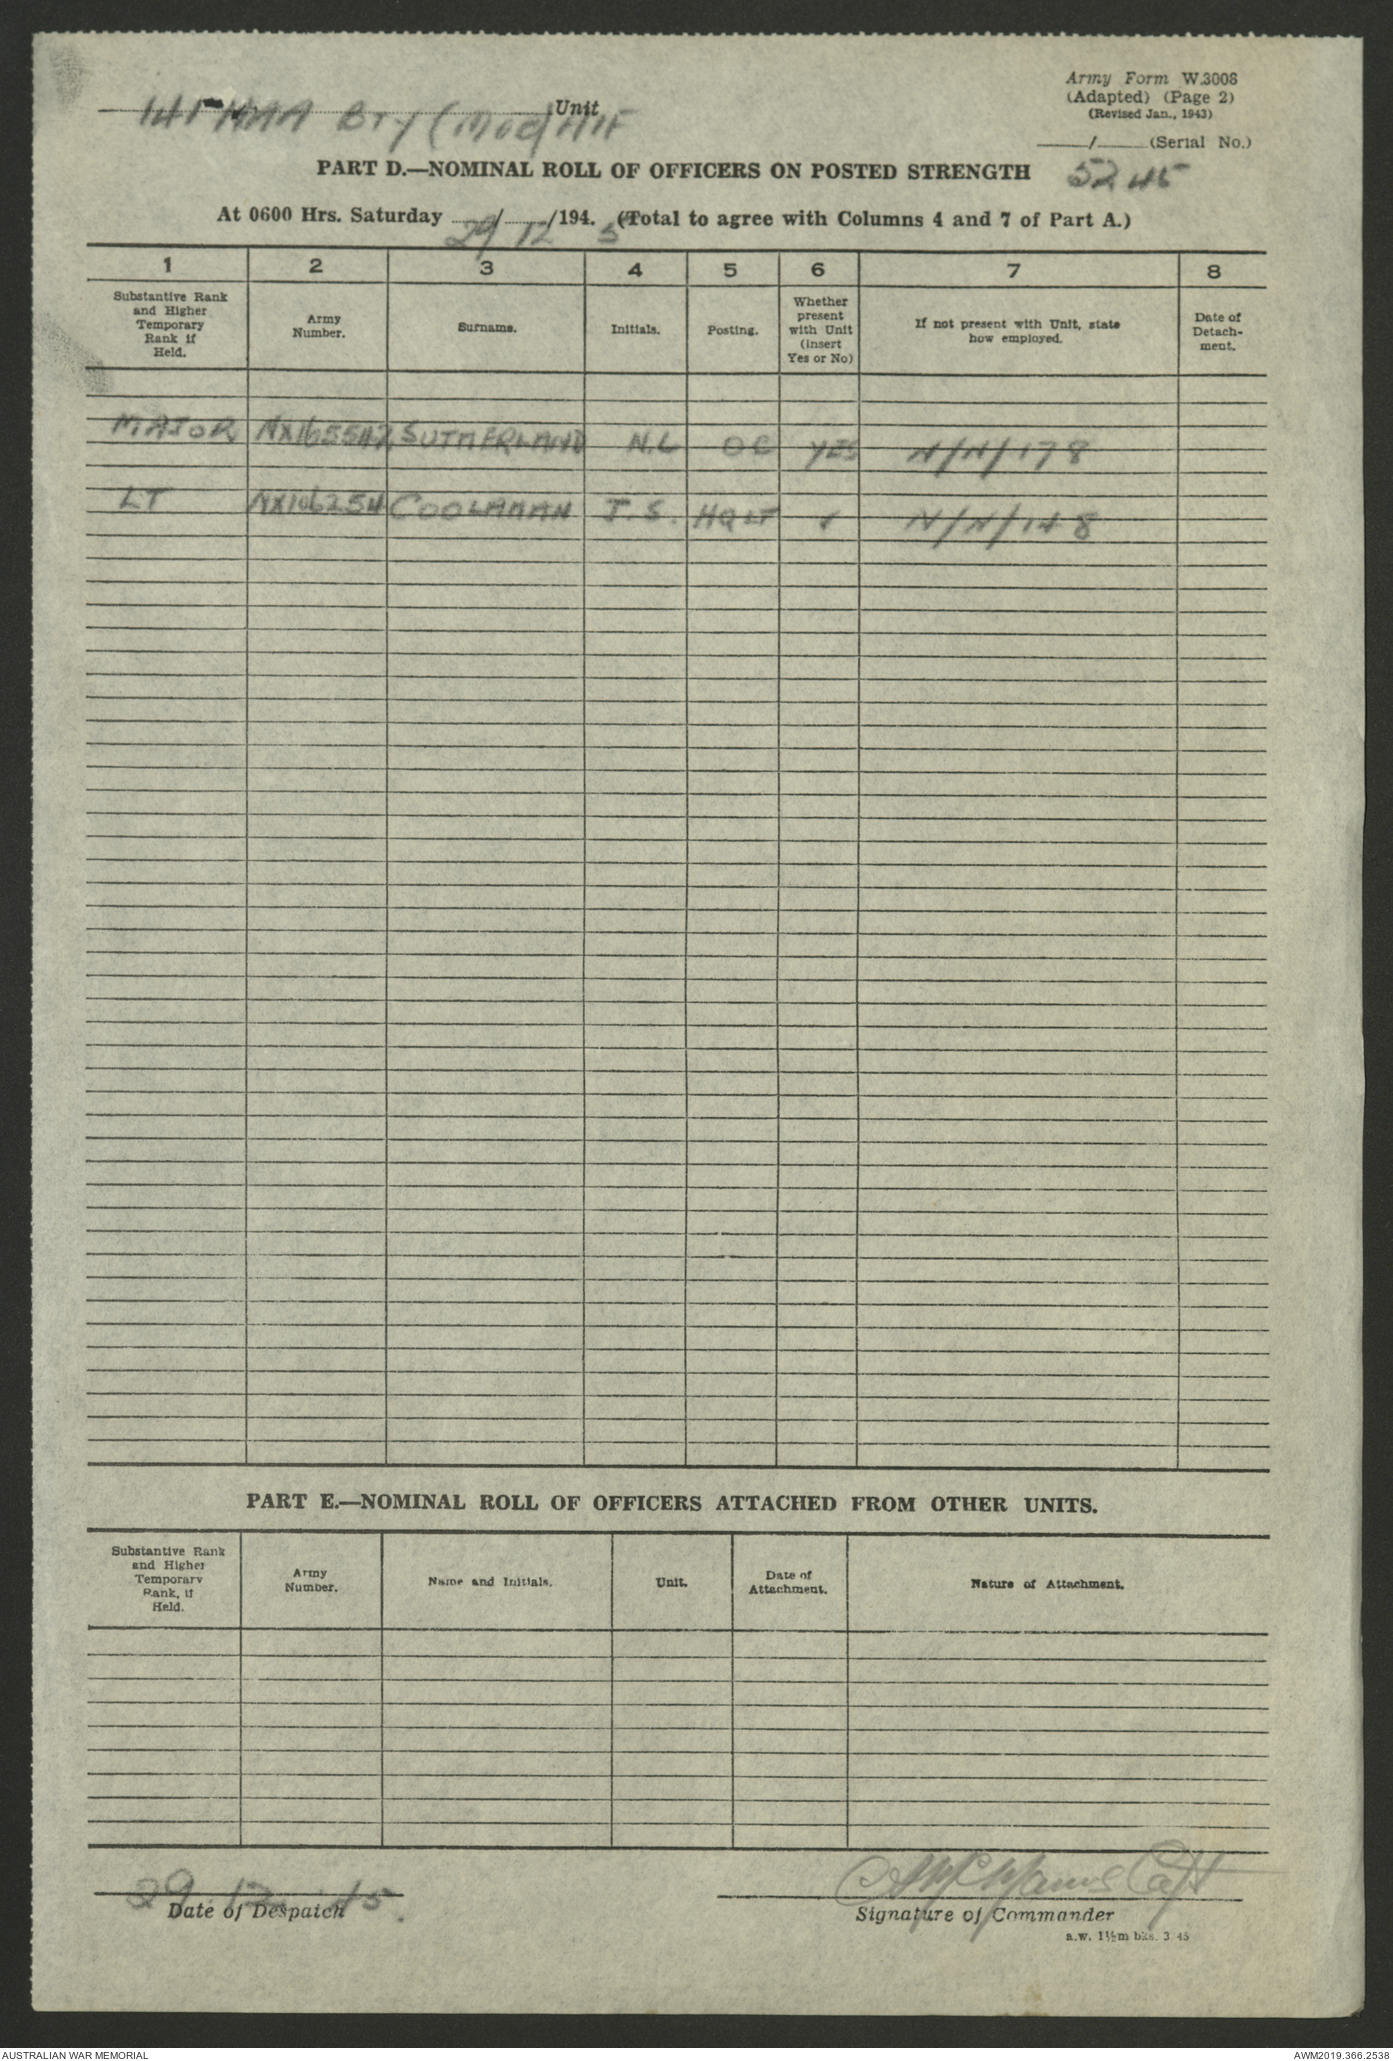 Army Form W.3008
(Adapted) (Page 2)
(Revised Jan., 1943)
141 HAA Bty (Mod) AIF Unit
/ (Serial No.)
52 45
PART D.—NOMINAL ROLL OF OFFICERS ON POSTED STRENGTH
At 0600 Hrs. Saturday 29/12/1945 (Total to agree with Columns 4 and 7 of Part A.)
1 2 3 4 5 6 7 8
Substantive Rank and Higher Temporary Rank if Held. Army Number. Surname. Initials. Posting. Whether present with Unit (insert Yes or No) If not present with Unit, state how employed. Date of Detach-ment.
MAJOR NX165547 SUTHERLAND N.L OC YES N/N/178
LT NX106254 COOLAHAN J.S. HQ LT N/N/148
PART E.—NOMINAL ROLL OF OFFICERS ATTACHED FROM OTHER UNITS.
Substantive Rank and Higher Temporary Rank, if Held. Army Number. Name and Initials. Unit. Date of Attachment. Nature of Attachment.
29 . 12 . 45 .
Date of Despatch
Capt
Signature of Commander
a.w. 1½m bks. 3 45
AUSTRALIAN WAR MEMORIAL
AWM2019.366.2538